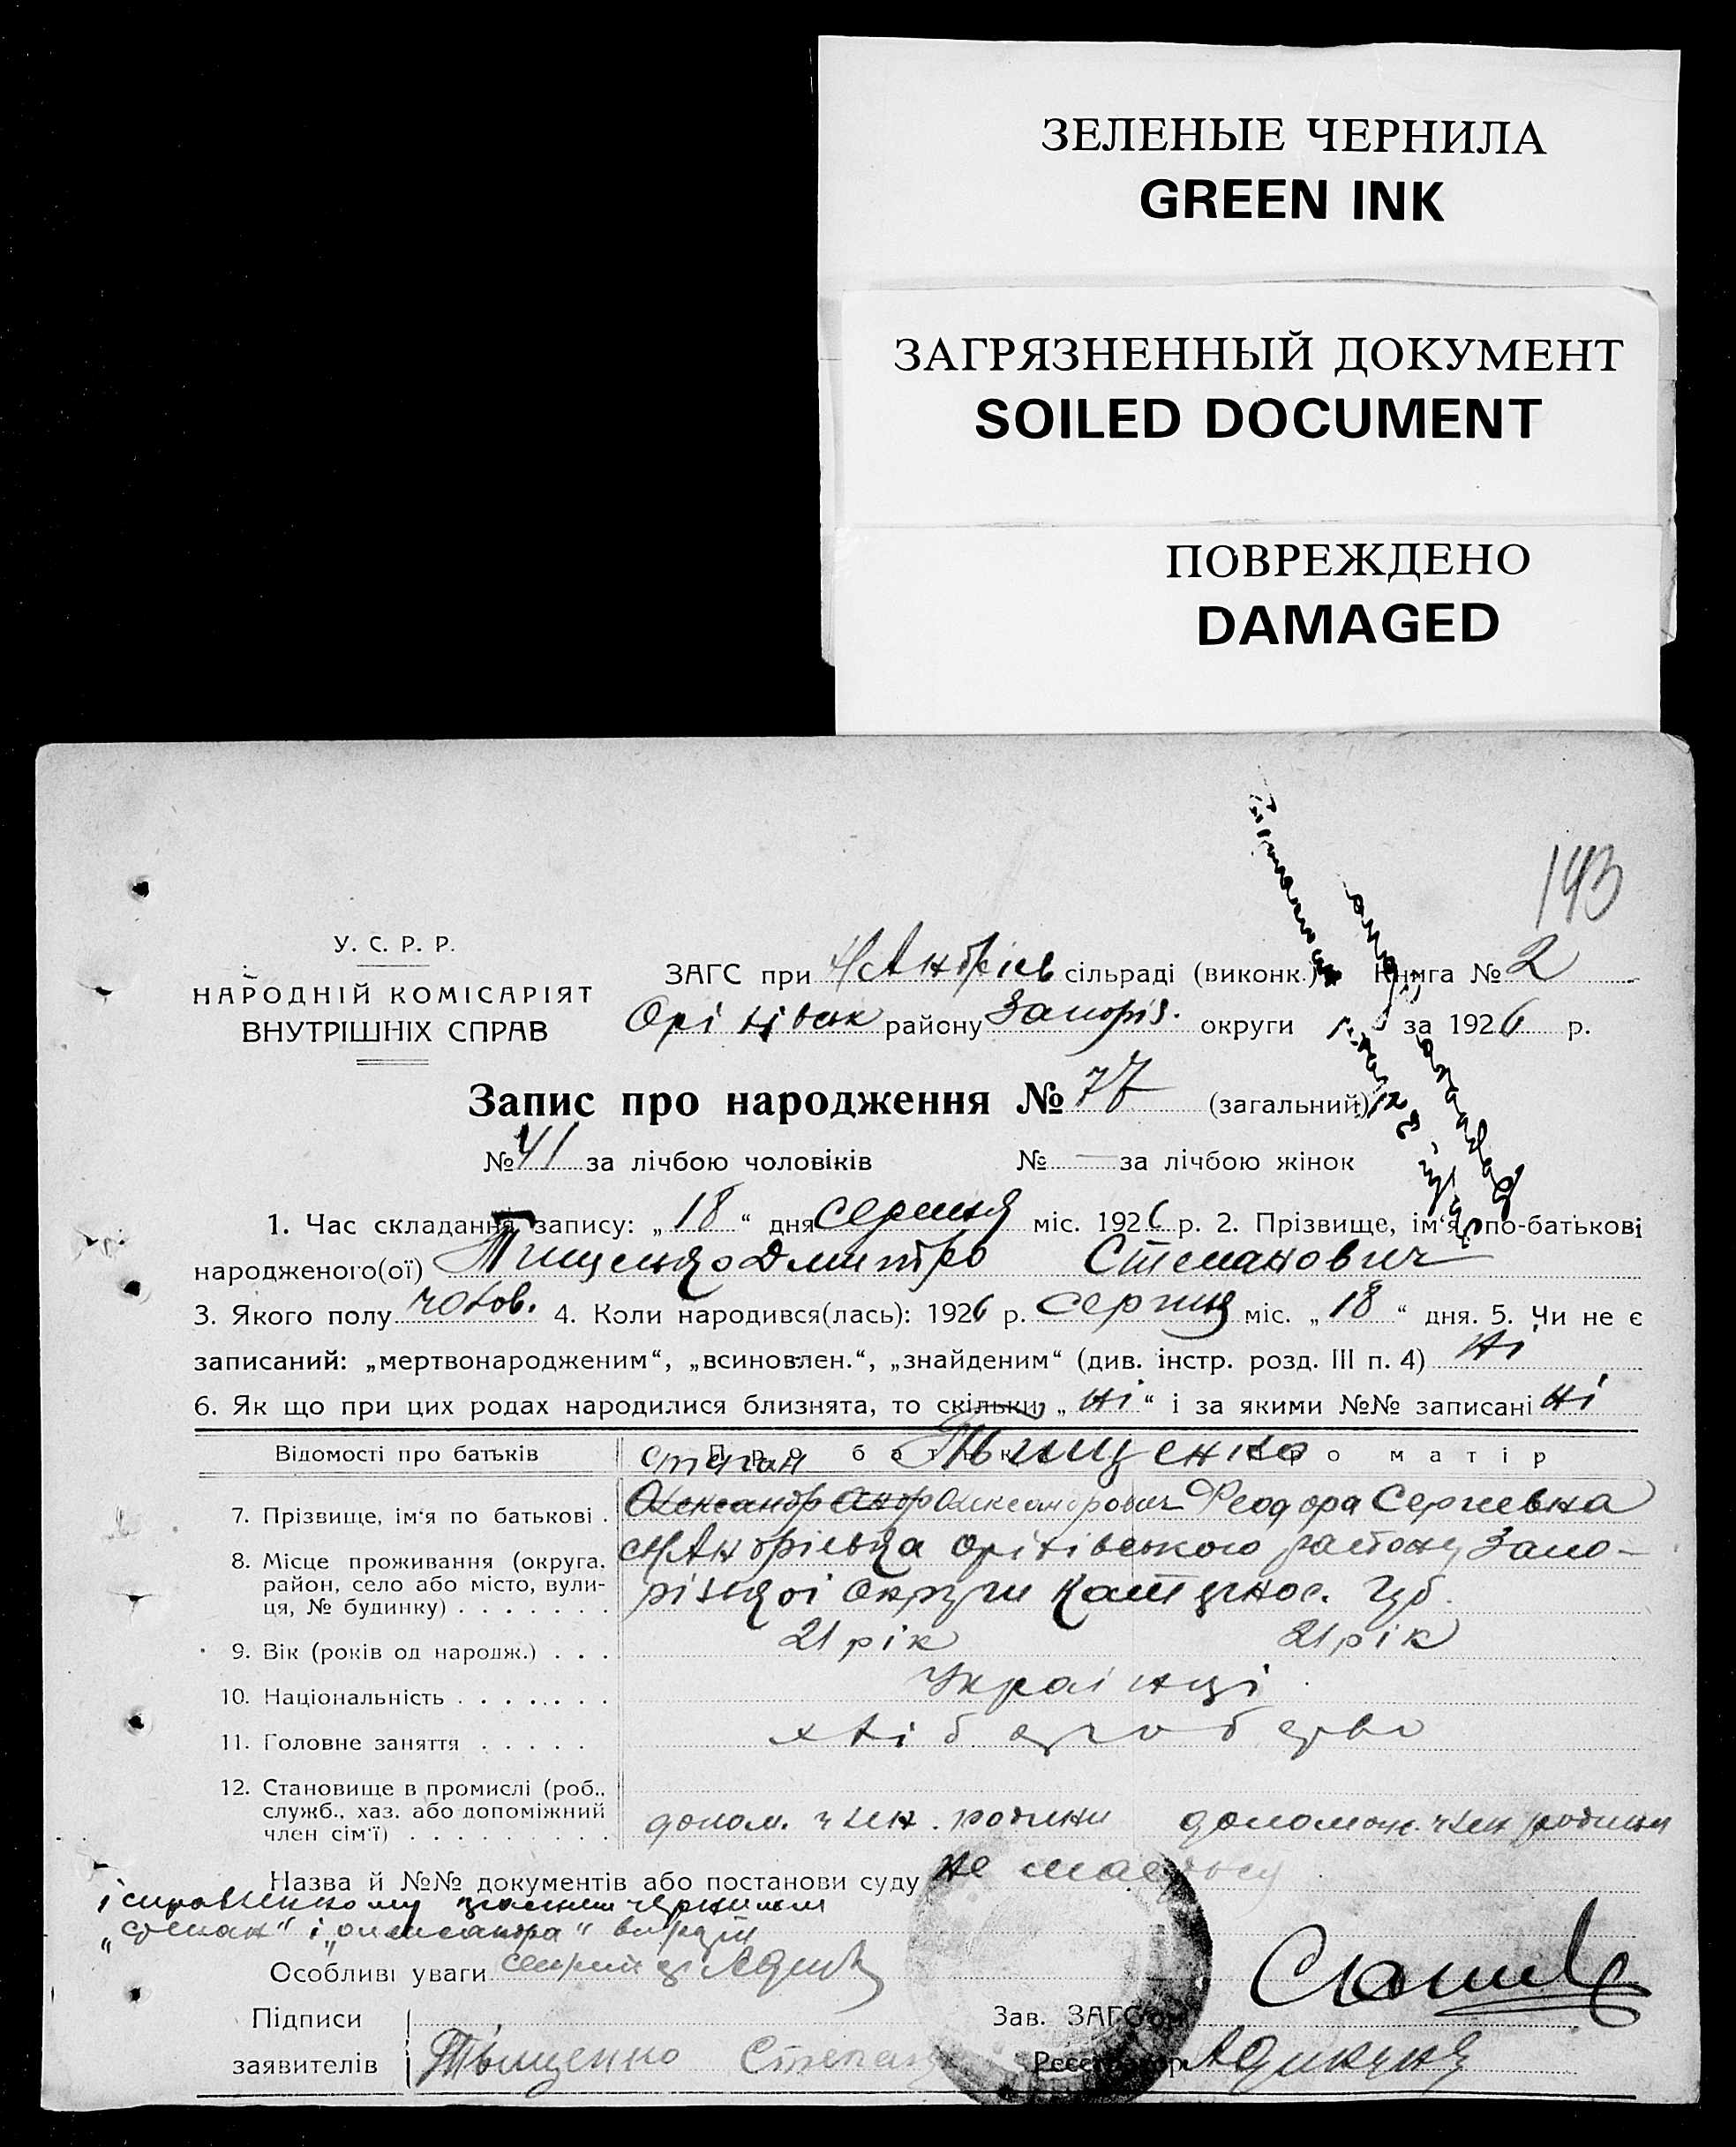 ЗЕЛЕНЫЕ ЧЕРНИЛА
GREEN INK
ЗАГРЯЗНЕННЫЙ ДОКУМЕНТ
SOILED DOCUMENT
ПОВРЕЖДЕНО
DAMAGED
143
У. С. Р. Р.
НАРОДНІЙ КОМІСАРІЯТ
ВНУТРІШНІХ СПРАВ
ЗАГС при сільраді (виконк.) Книга № 2
району Запоріз. округи за 1926 р.
Запис про народження № 77 (загальний)
№ 41 за лічбою чоловіків № — за лічбою жінок
1. Час складання запису: „ 18 “ дня серпня міс. 1926 р. 2. Прізвище, ім‘я, по-батькові
народженого(ої) Тищенко Дмитро Степанович
3. Якого полу чолов. 4. Коли народився(лась): 1926 р. серпня міс. „ 18 “ дня. 5. Чи не є
записаний: „мертвонародженим“, „всиновлен.“, „знайденим“ (див. інстр. розд. III п. 4) ні
6. Як що при цих родах народилися близнята, то скільки „ ні “ і за якими №№ записані ні
Відомості про батьків Про батька Тыщенко Про матір
Степан
7. Прізвище, ім‘я по батькові . Олександр Олександрович Феодора Сергиевна
8. Місце проживання (округа, район, село або місто, вулиця, № будинку) . . . . . . . Оріхівського району Запо-
різької округи Катеринос. Губ.
9. Вік (років од народж.) . . . 21 рік 21 рік
10. Національність . . . . . . . Українці
11. Головне заняття . . . . . хліборобство
12. Становище в промислі (роб., служб., хаз. або допоміжний член сім‘ї) . . . . . . . . . допом. член. родини допомож. член родини
Назва й №№ документів або постанови суду не мається
чернилом
„Степан“ і „Олександра“ вірити
Особливі уваги
Підписи
заявителів Тыщенко Степан
Зав. ЗАГСом
Реєстратор